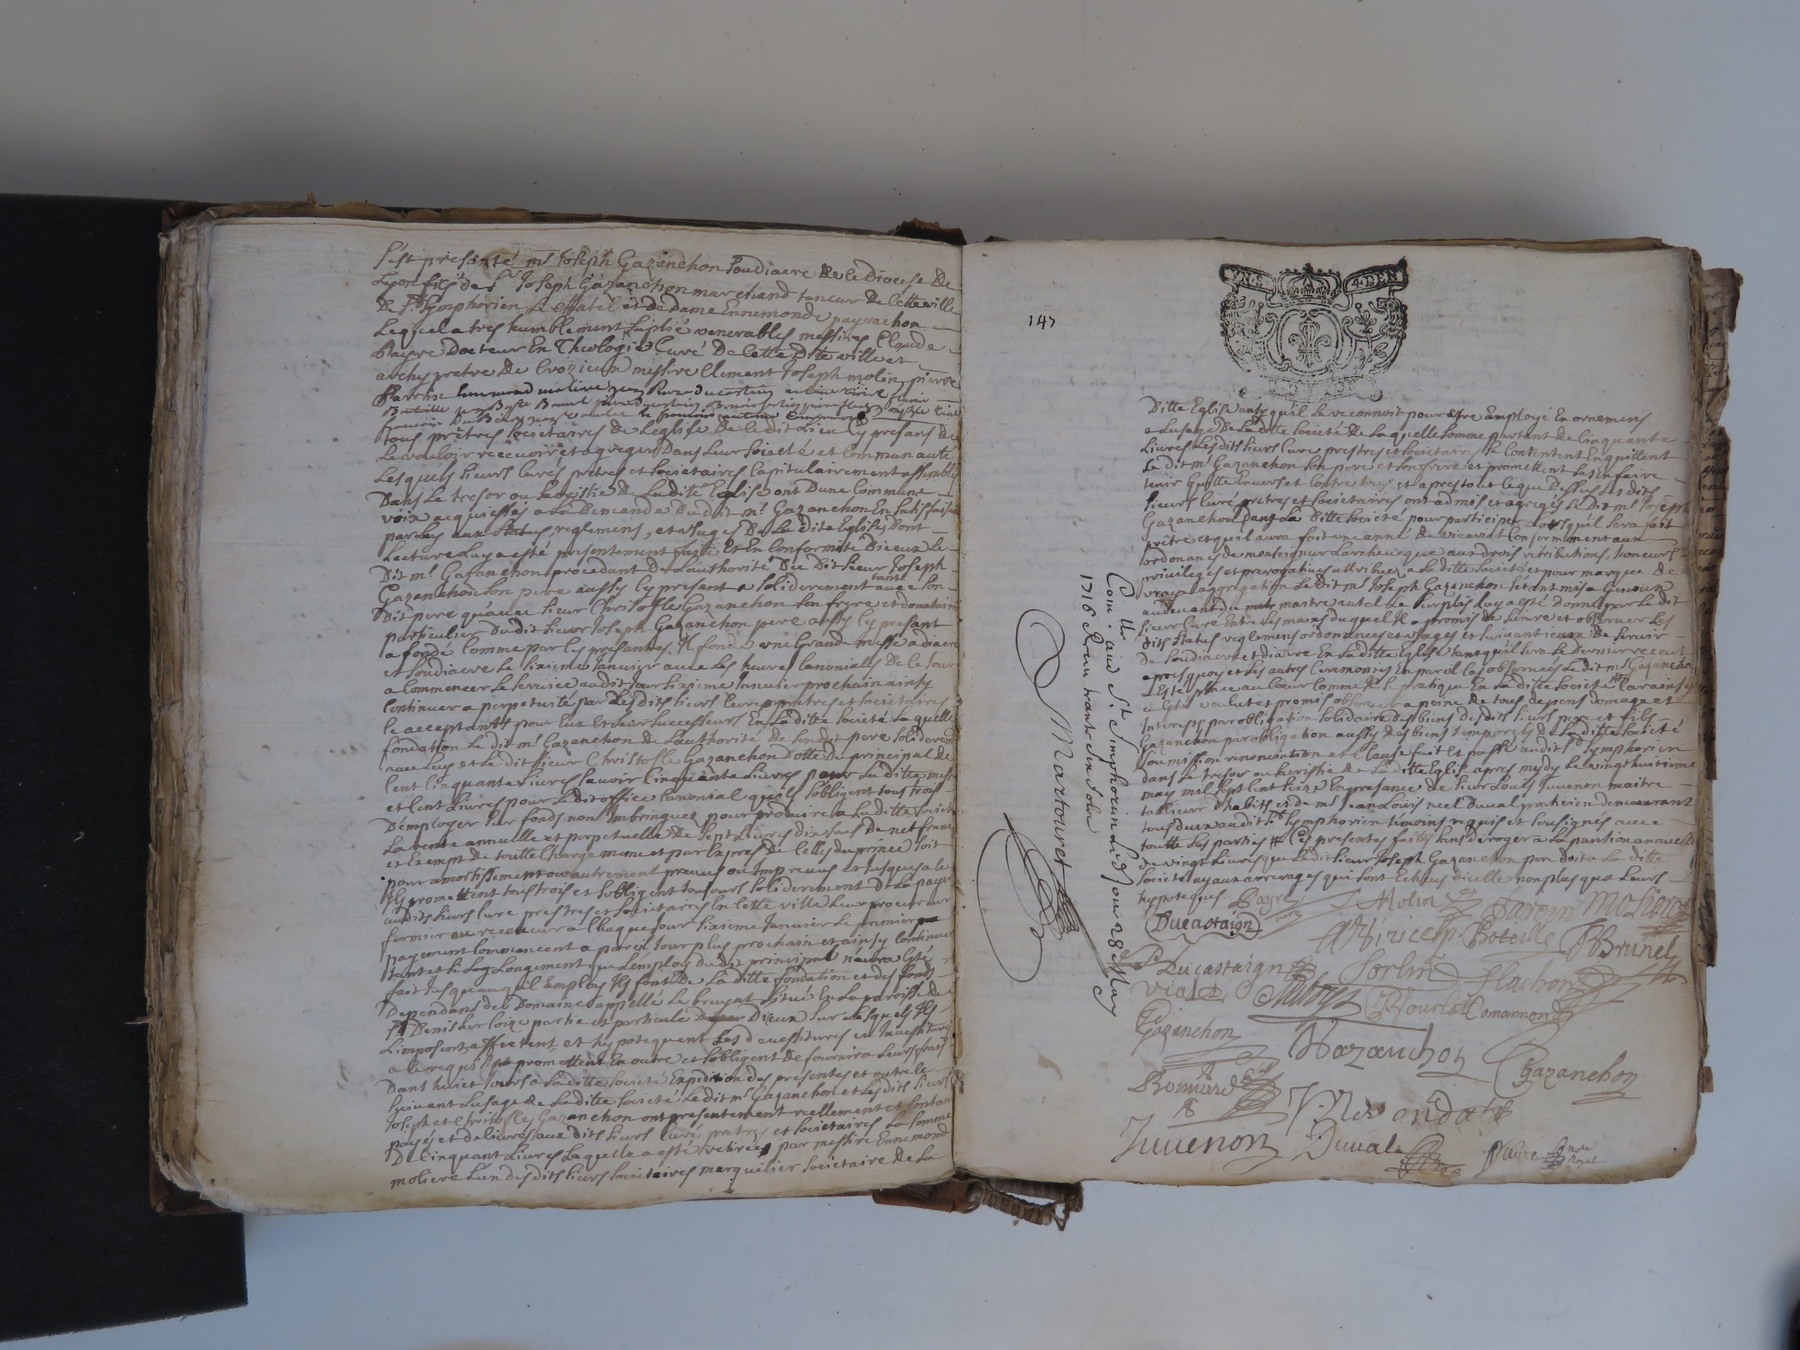 S'est presanté mr Joseph Gazanchon soudiacre de ce Diocese de
Lyon fils de sr Joseph Gazanchon marchand taneur de cette ville
de St Simphorien le Chatel et de dame Ennemonde payrachon
Lequel a tres humblement suplié venerables messires Claude
Payre Docteur En Theologie Curé De Cette ditte ville et
archyprêtre de Crozieux messire Clement Joseph molin, pierre
tous prêtres societaires de Leglise de ce dit Lieu Cy presans de
Le vouloir recevoir et agreger Dans Leur Societé et Communauté
Lesquels sieurs Curés prêtres et Societaires Capitulairement assemblés
Dans Le tresor ou sacristie de Laditte Eglise ont Dune Commune
voix acquiessés a La Demande Dudit mr Gazanchon En satisfaisant
par luy aux statuts, reglemens, et usages De La dite Eglise Dont
Lecture Luy a esté presentement faite Et En Conformité Diceux Le
Dit mr Gazanchon procedant De Lauthorité Du Dit sieur Joseph
Gazanchon son pere aussy Cy present a solidairement tant avec son
Dit pere qu'avec sieur Christofle Gazanchon son frere et donataire
particulier Dudit sieur Joseph Gazanchon pere aussy Cy presant
a fondé Comme par Ces presantes Il fonde une Grande messe a diacre
et soudiacre Le sixieme Janvier avec Les heures Canoniales de Ce Jour
a Commencer Le service audit Jour sixieme Janvier prochain ainsy
Continuer a perpetuité par Les dits sieurs Curé prêtres et societaires
Ce acceptants pour Eux et Leur successeurs En Laditte Societé La quelle
fondation Le dit mr Gazanchon de Lauthorité de son dit pere solidairement
avec Luy et Le dit sieur Christofle Gazanchon Dotte du principal de
Cent Cinquante Livres savoir Cinquante Livres pour La ditte messe
et Cent Livres pour Le dit office Canonial quils sobligent tous trois
Demployer sur fonds non Imbringués pour produire a La ditte Societé
La rente annuelle et perpetuelle De sept Livres dix sols de net franc
et Exempt de toutte Charge mesme et par Expres de Celles du prince soit
pour amortissement ou autrement prevus ou Impreveus et Jusques a Ce
Ils promettent tous trois et sobligent tousjours solidairement De La payer
aux Dits sieurs Cure prestres et societaires En Cette ville Leur procureur
fermier ou receveur a Chaque Jour sixieme Janvier Le premier
payement Commencent a pareil Jour plus prochain et ainsy Continuer
tant et si Longuement que Lemploy du dit principal n'aura Eté
fait Jusqu'auquel Employ Ils font De La ditte fondation et des fonds
Dependans de Domaine appelle Le bruyat situé En La paroisse de
St Denis sur Coize partie et particule Diceux sur Lesquels Ils
Limposent affectent et hypotequent Les devestitures et Investitures
a Ce requises promettent En outre et sobligent de fournir a Leurs frais
Dans huict Jours a La ditte Societé Expedition des presentes et outre Ce
suivant Lusage de La ditte Societé Le dit mr Gazanchon et Les dits sieurs
Joseph et Christofle Gazanchon ont presentement reellement et Contant
payé et delivrés aux dits sieurs Curé pretres et societaires La somme
De Cinquant Livres Laquelle a esté retirée par messire Ennemond
moliere Lun des dits sieurs societaires marguilier societaire de La
147
VN·S· 4·DEN
Ditte Eglise ainsy quil Le reconnoit pour estre Employé En ornemens
a Lusage De La ditte Societé De La quelle somme partant de Cinquante
Livres Les dits sieurs Cure prestres et societaires se Contentent En quittent
Le dit mr Gazanchon son pere et son frere et promettent Les En faire
tenir quitte Envers et Contre tous et apres tout Ce que Dessus Les dits
sieurs Curé pretres et societaires ont admis et agregés Le Dit mr Joseph
Gazanchon Dans La ditte Societé pour participer alors quil sera fait
prêtre et quil aura fait une anné de vicariat Conformement aux
ordonances de monseigneur Larcheveque aux drois retributions, honeurs
privileges et prerogatives attribuez a La ditte Societé et pour marque de
vraye aggregation Le Dit mr Joseph Gazanchon sétant mis a Genoux
audevant du maitre autel Le surplis Luy a esté donné par Le dit
sieur Cure Entre Les mains duquel Il a promis de suivre et observer Les
dits statuts reglemens ordonances et usages et suivant iceux de servir
De soudiacre et diacre En La ditte Eglise tant quil sera Le dernier receut
apres quoy et Les autres Ceremonies En pareil Cas observées Le dit mr Gazanchon
a Esté placé au Coeur Comme Il se pratique En La ditte Societé Car ainsy
a Esté voulu et promis observer a peine de tous depens domage et
Interets par obligation solidaire Des biens desdits sieurs pere et fils
Gazanchon par obligation aussy des biens temporels de La ditte Societé
soumission renonciation et Clause fait et passé audit St Symphorien
dans Le tresor ou sacristie de La ditte Eglise apres mydy Le vingt huitieme
may mil sept Cent seize En presance de sieur Louis Juvenon maitre
tallieur Dhabits et de mr Jean Louis neel Duval praticien demeurant
tous deux audit St Symphorien temoins requis et sousignes avec
toutte Les parties Ces presentes faites sans Deroger a La pantion annuelle
de vingt Livres que Le dit sieur Joseph Gazanchon pere doit a La ditte
Societé ny aux arrerages qui sont Echus dicelle non plus qua Leurs
hypoteques Payre J Molin Parrin Moliere
Ducastaign Bataille PBrunel
Ducastaign Sorlin Flachon
Vial Comarmond
Gazanchon Gazanchon Gazanchon
Juvenon Duval
Con.lle aud St. Simphorien Le 8 Jouin 28 May
1716 Receu trante six sols
Martouret